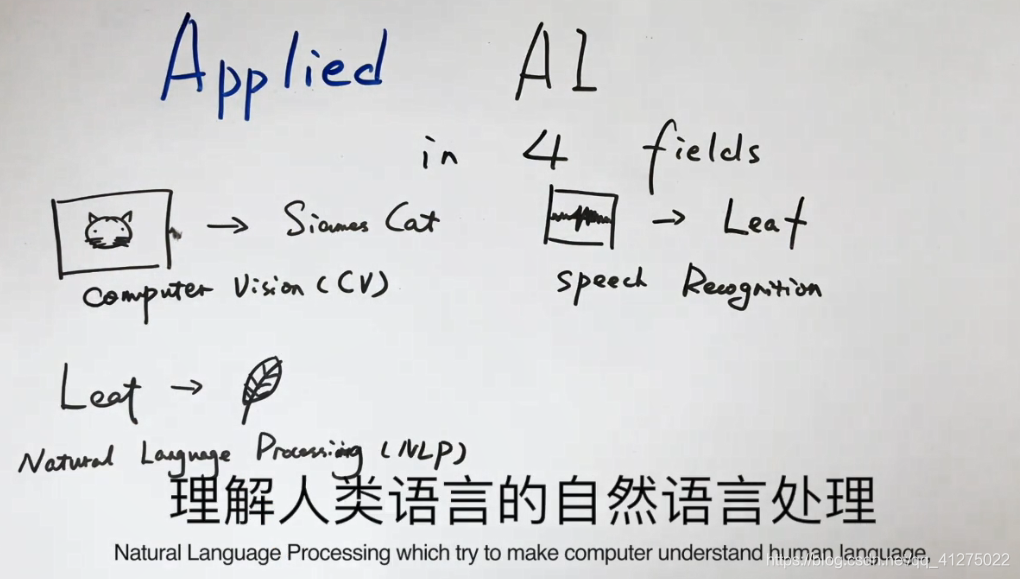 Applied AI
in 4 fields
→ Siames Cat
Computer Vision (CV)
→ Leaf
Speech Recognition
Leaf →
Natural Language Processing (NLP)
理解人类语言的自然语言处理
Natural Language Processing which try to make computer understand human language.
https://blog.csdn.net/qq_41275022